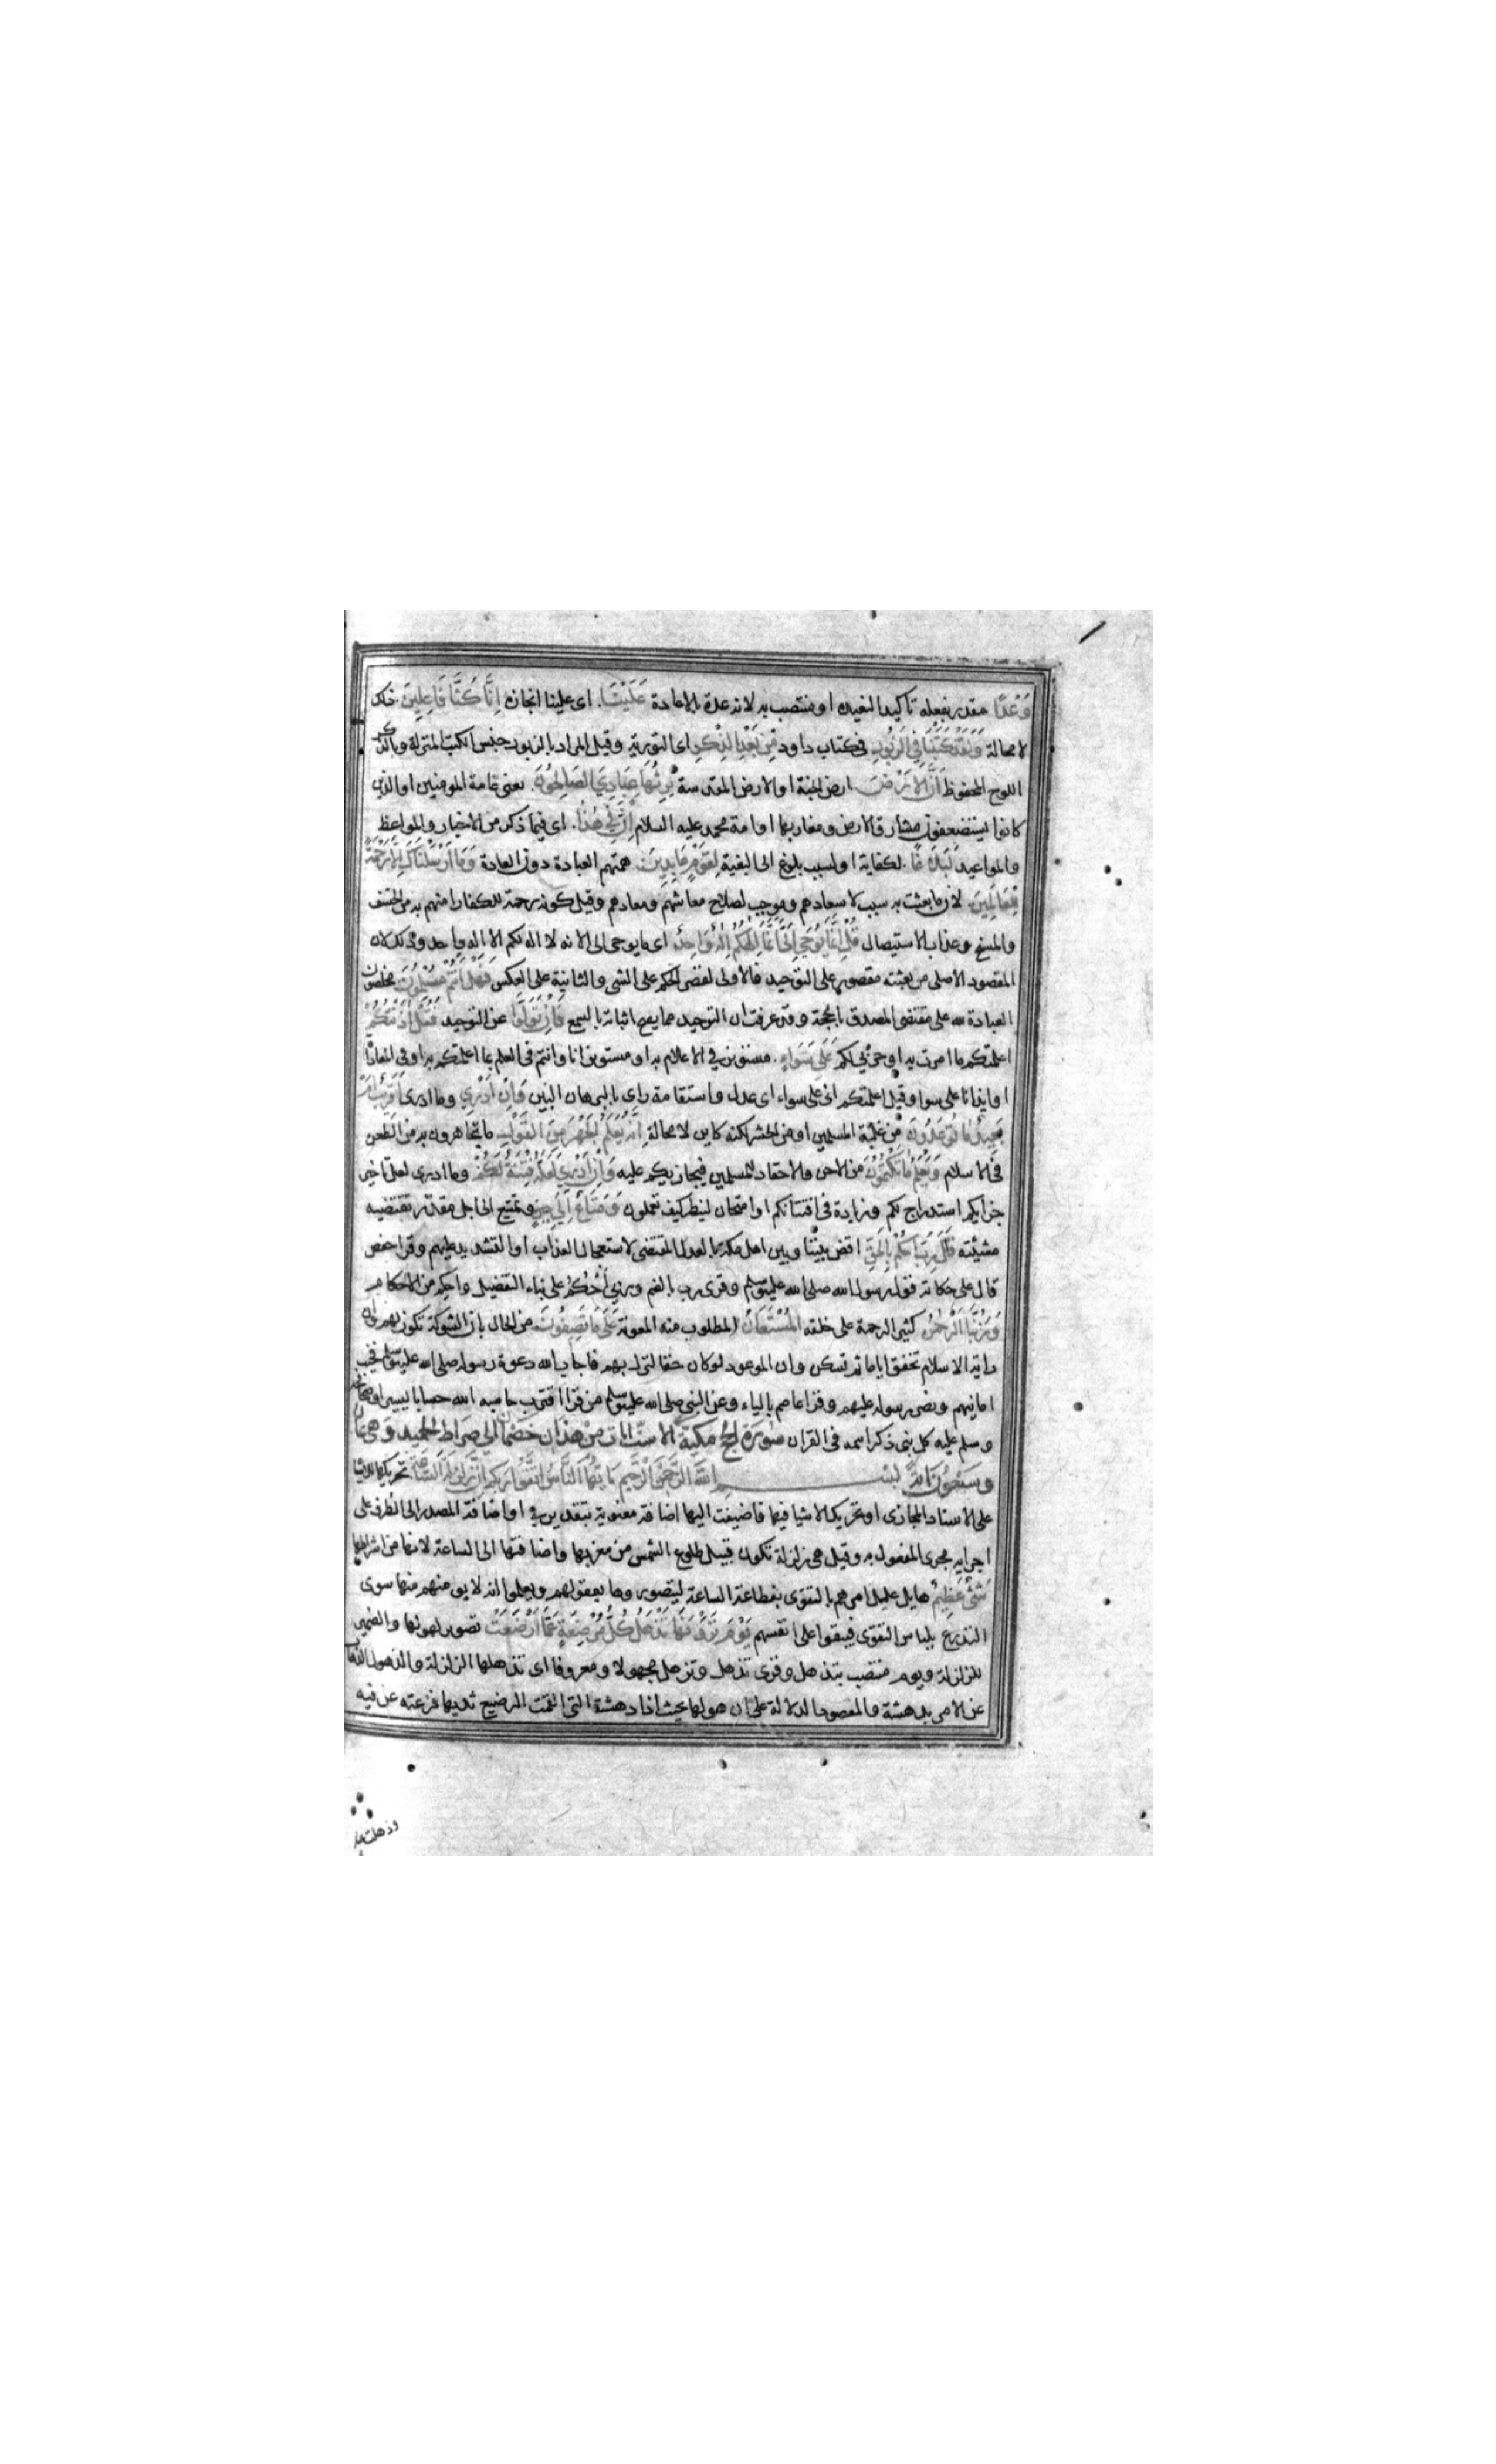 وَعْدًا مقدر بفعله تاكيدا لنعيده او منتصب به لانه عدة بالاعادة عَلَيْنَا. اى علينا انجازه اِنَّا كُنَّا فَاعِلِينَ. ذلك
لا محالة وَلَقَدْ كَتَبْنَا فِي الزَّبُورِ فى كتاب داود مِنْ بَعْدِ الذِّكْرِ اى التورية وقيل المراد بالزبور جنس الكتب المنزلة وبالذكر
اللوح المحفوظ اَنَّ الْاَرْضَ ارض الجنة او الارض المقدسة يَرِثُهَا عِبَادِيَ الصَّالِحُونَ. يعنى عامة المومنين او الذين
كانوا يستضعفون مشارق الارض ومغاربها او امة محمد عليه السلام اِنَّ فِي هٰذَا. اى فيما ذكر من الاخبار والمواعظ
والمواعيد لَبَلَاغًا. لكفاية او لسبب بلوغ الى البغية لِقَوْمٍ عَابِدِينَ. همتهم العبادة دون العادة وَمَا اَرْسَلْنَاكَ اِلَّا رَحْمَةً
لِلْعَالَمِينَ. لان ما بعثت به سبب لاسعادهم وموجب لصلاح معاشهم ومعادهم وقيل كونه رحمة للكفار امنهم به من الخسف
والمسخ وعذاب الاستيصال قُلْ اِنَّمَا يُوحَى اِلَيَّ اَنَّمَا اِلٰهُكُمْ اِلٰهٌ وَاحِدٌ اى ما يوحى الى الا انه لا اله لكم الا اله واحد وذلك لان
المقصود الأصلى من بعثته مقصور على التوحيد فالاولى لقصر الحكم على الشى والثانية على العكس فَهَلْ اَنْتُمْ مُسْلِمُونَ مخلصون
العبادة لله على مقتضى المصدق بالحجة وقد عرفت ان التوحيد مما يصح اثباته بالسمع فَاِنْ تَوَلَّوْا عن التوحيد فَقُلْ اٰذَنْتُكُمْ
اعلمتكم ما امرت به او حربى لكم عَلَى سَوَاءٍ. مستوين فى الاعلام به او مستوين انا وانتم فى العلم بما اعلمتكم به او فى المعاداة
او ايذانا على سوا وقيل اعلمتكم انى على سواء اى عدل واستقامة راى بالبرهان النير وَاِنْ اَدْرِي وما ادرى اَقَرِيبٌ اَمْ
بَعِيدٌ مَا تُوعَدُونَ من غلبة المسلمين او من الحشر لكنه كاين لا محالة اِنَّهُ يَعْلَمُ الْجَهْرَ مِنَ الْقَوْلِ ما تجاهرون به من الطعن
فى الاسلام وَيَعْلَمُ مَا تَكْتُمُونَ من الاحن والاحقاد للمسلمين فيجازيكم عليه وَاِنْ اَدْرِي لَعَلَّهُ فِتْنَةٌ لَكُمْ وما ادرى لعل تاخير
جزايكم استدراج لكم وزيادة فى افتتانكم او امتحان لينظر كيف تعملون وَمَتَاعٌ اِلَى حِينٍ وتمتيع الى اجل مقدر تقتضيه
مشيئته قَالَ رَبِّ احْكُمْ بِالْحَقِّ اقض بيننا وبين اهل مكة بالعدل المقتضى لاستعجال العذاب او التشديد عليهم وقرا حفص
قال على حكاية قول رسول الله صلى الله عليه وسلم وقرى رب بالضم وربى اَحْكُمُ على بناء التفضيل واحكم من الاحكام
وَرَبُّنَا الرَّحْمٰنُ كثير الرحمة على خلقه الْمُسْتَعَانُ المطلوب منه المعونة عَلَى مَا تَصِفُونَ من الحال بان الشوكة تكون لهم وان
راية الاسلام تخفق اياما ثم تسكن وان الموعود لو كان حقا لنزل بهم فاجاب الله دعوة رسوله صلى الله عليه وسلم فخيب
امانيهم ونصر رسوله عليهم وقرا عاصم بالياء وعن النبى صلى الله عليه وسلم من قرا اقترب حاسبه الله حسابا يسيرا وصافحه
وسلم عليه كل نبى ذكر اسمه فى القران سُورَة الحج مكية الا ستّ ايات من هذان خصمان الى صراط الحميد وهى ثمان
وسبعون اية بسم الله الرَّحْمٰنِ الرَّحِيمِ يَا اَيُّهَا النَّاسُ اتَّقُوا رَبَّكُمْ اِنَّ زَلْزَلَةَ السَّاعَةِ تحريكها للاشيا
على الاسناد المجازى او تحريك الاشيا فيها فاضيفت اليها اضافة معنوية بتقدير فى او اضافة المصدر الى الظرف على
اجرايه مجرى المفعول به وقيل هى زلزلة تكون قبيل طلوع الشمس من مغربها واضافتها الى الساعة لانها من اشراطها
شَىْءٌ عَظِيمٌ هايل علل امرهم بالتقوى بفظاعة الساعة ليتصوروها بعقولهم ويعلموا انه لا يومنهم منها سوى
التدرع بلباس التقوى فيبقوا على انفسهم يَوْمَ تَرَوْنَهَا تَذْهَلُ كُلُّ مُرْضِعَةٍ عَمَّا اَرْضَعَتْ تصوير لهولها والضمير
للزلزلة ويوم منتصب بتذهل وقرى تذهل وتذهل مجهولا ومعروفا اى تذهلها الزلزلة والذهول الذهاب
عن الامر بدهشة والمقصود الدلالة على ان هولها بحيث اذا دهشة التى القمت الرضيع ثديها نزعته عن فيه
وذهلت عنه